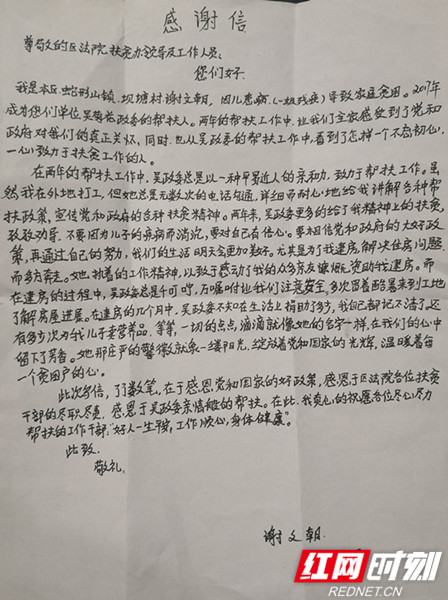 感谢信
尊敬的区法院扶贫办领导及工作人员:
您们好.
我是本区蛇形山镇.坝塘村.谢文朝,因儿患病.(一级残疾)导致家庭贫困。2017年
成为您们单位吴梅芳政委的帮扶人。两年的帮扶工作中.让我们全家感受到了党和
政府对我们的真正关怀,同时.也从吴政委的帮扶工作中,看到了怎样一个不忘初心.
一心致力于扶贫工作的人。
在两年的帮扶工作中.吴政委总是以一种平易近人的亲和力.致力于帮扶工作。虽
然我在外地打工,但她总是无数次的电话沟通,详细而耐心地给我讲解各种帮
扶政策,宣传党和政府的各种扶贫精神。两年来,吴政委更多的给了我精神上的扶贫,
孜孜劝导.不要因为儿子的疾病而消沉,要对自己有信心。要相信党和政府的大好政
策,再通过自己的努力,我们的生活明天会更加美好。尤其是为了我建房,解决住房问题
而多方奔走。她执着的工作精神,以致于感动了我的众多亲友慷慨资助我建房。而
在建房的过程中,吴政委总是千叮咛,万嘱咐让我们注意质量,多次冒着酷暑来到工地
了解房屋进展。在建房的几个月中,吴政委不知在生活上捐助了多少,我自己都记不清了。还
有多次为我儿子卖营养品,等等,一切的点点滴滴就像她的名字一样,在我们的心中
留下了芳香。她那庄严的警徽就象一缕阳光,绽放着党和国家的光辉,温暖着每
一个贫困户的心。
此次写信,了了数笔,在于感恩党和国家的好政策,感恩于区法院各位扶贫
干部的尽职尽责.感恩于吴政委亲情般的帮扶。在此.我真心的祝愿各位尽心尽力
帮扶的工作干部:"好人一生平安,工作顺心,身体健康"。
此致.
敬礼.
谢文朝.
红网时刻
REDNET.CN